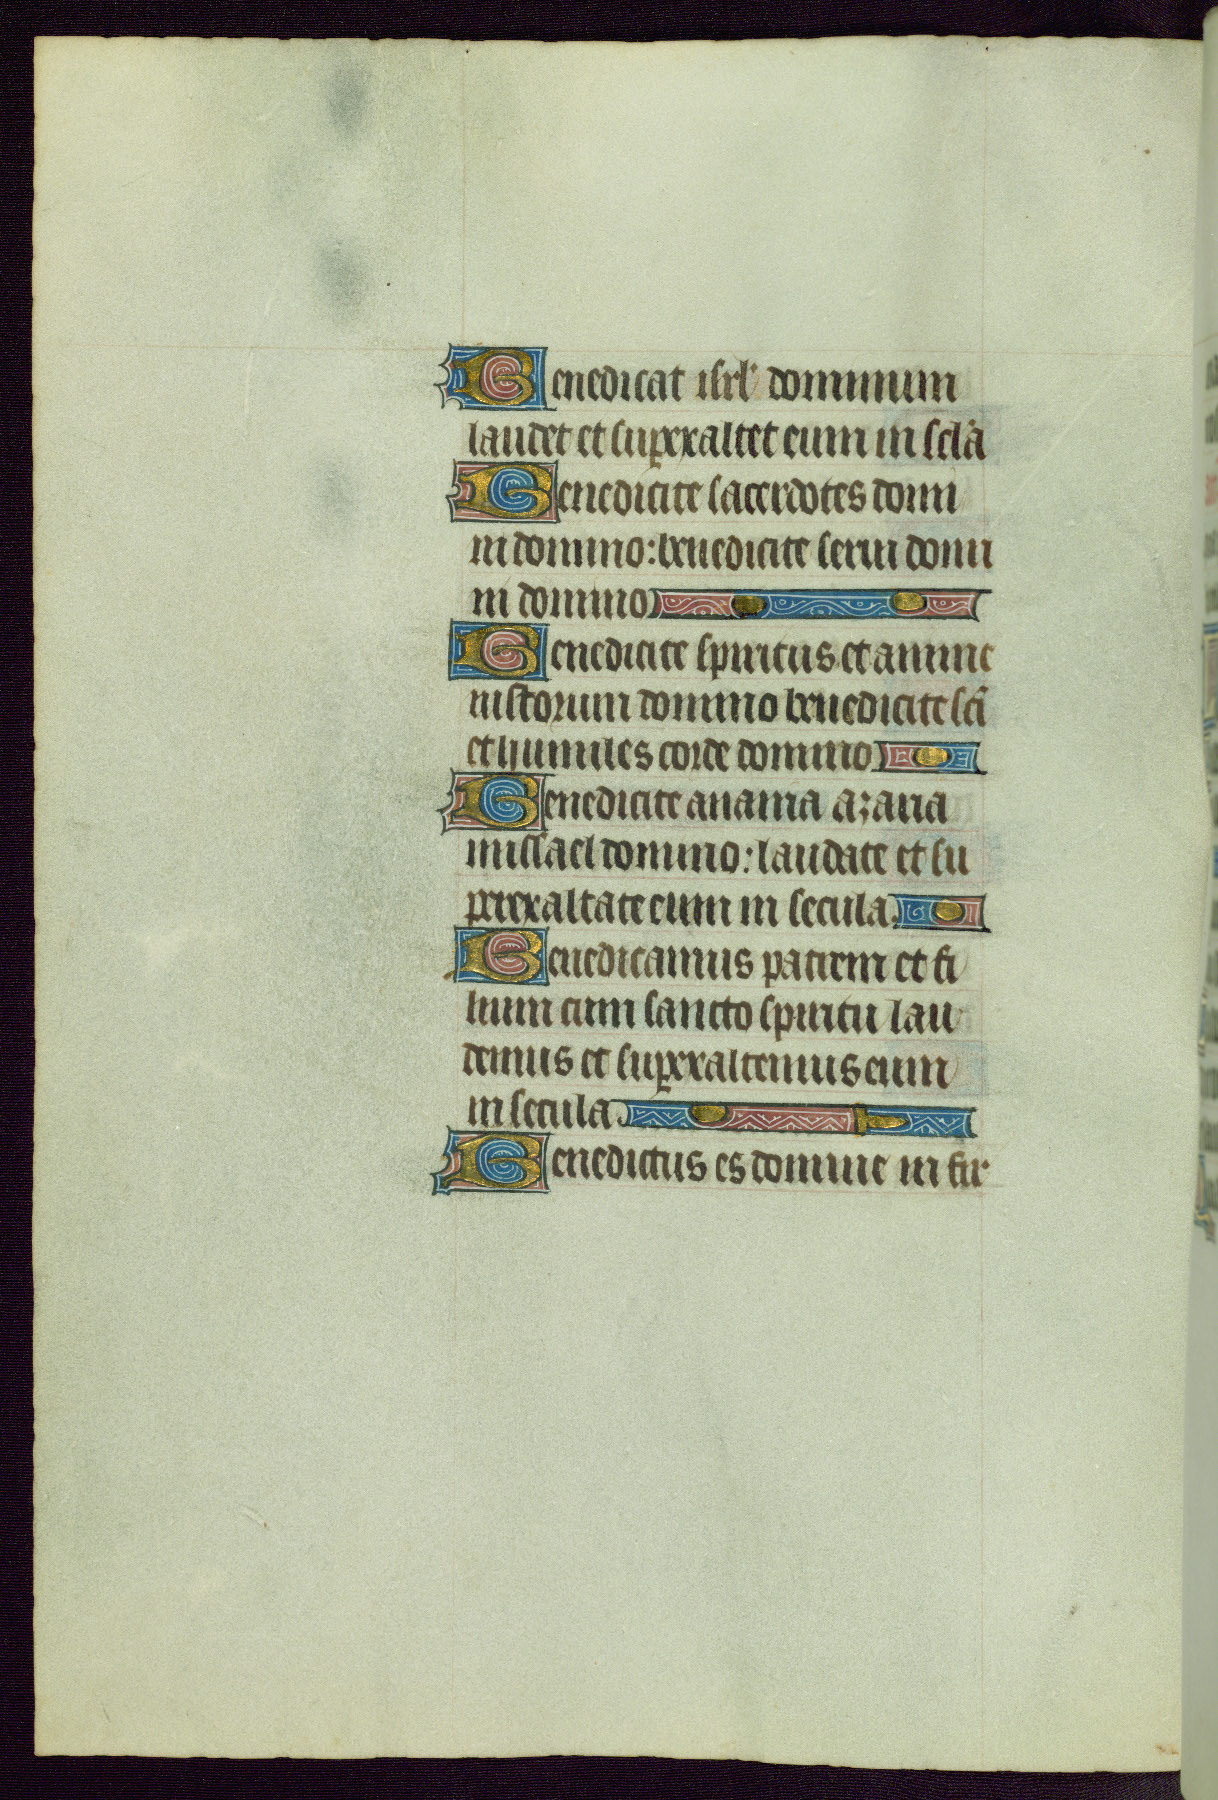 Benedicat isrl' dominum
laudet et superexaltet eum in scl'a
Benedicite sacerdotes domi
ni domino: benedicite serui domi
ni domino
Benedicite spiritus et anime
iustorum domino benedicite sc̄i
et humiles corde domino
Benedicite anania azaria
missael domino: laudate et su
perexaltate eum in secula.
Benedicamus patrem et fi
lium cum sancto spiritu lau
demus et superexaltemus eum
in secula.
Benedictus es domine in fir